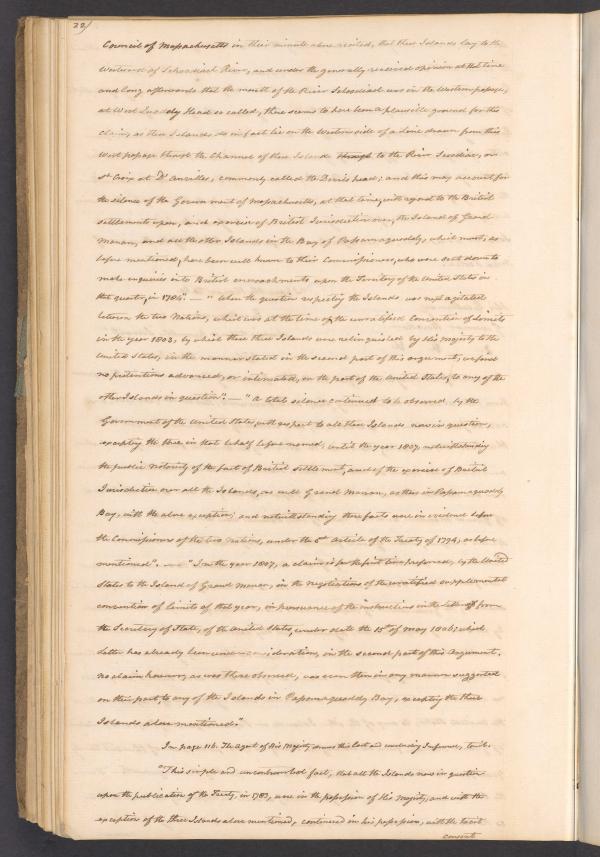 22/
Council of Massachusetts in their minute above recited, that these Islands lay to the
Westward of Schoodiach River, and under the generally received opinion at that time
and long afterwards that the mouth of the River Schoodiach was in the Western passage,
at West Quoddy Head so called, there seems to have been a plausible ground for this
claim, as these Islands do in fact lie on the Western side of a line drawn from this
West passage through the Channel of these Islands to the River Scoodiac, or
St Croix at D'Anvilles, commonly called the Devils head; and this may account for
the silence of the Government of Massachusetts, at that time, with regard to the British
settlements upon, and exercise of British Jurisdiction over, the Island of Grand
Manan, and all the other Islands in the Bay of Passamaquoddy, which must, as
before mentioned, have been well known to their Commissioners, who were sent down to
make enquiries into British encroachments upon the Territory of the United States in
that quarter, in 1784." — "When the question respecting the Islands was next agitated
between the two Nations, which was at the time of the unratified Convention of Limits
in the year 1803, by which these three Islands were relinquished by His Majesty to the
United States, in the manner stated in the second part of this argument, we find
no pretentions advanced, or intimated, on the part of the United States, to any of the
other Islands in question." — "A total silence continued to be observed by the
Government of the United States, with respect to all these Islands now in question,
excepting the three in that behalf before named, until the year 1807, notwithstanding
the public notoriety of the fact of British Settlement, and of the exercise of British
Jurisdiction over all the Islands, as well Grand Manan, as those in Passamaquoddy
Bay, with the above exception; and notwithstanding these facts were in evidence before
the Commissioners of the two Nations, under the 5th Article of the Treaty of 1794, as before
mentioned". — "In the year 1807, a claim is for the first time preferred, by the United
States to the Island of Grand Manan, in the negotiations of the unratified supplemental
convention of limits of that year, in pursuance of the instructions in the letter from
the Secretary of State, of the United States, under date the 15th of May 1806; which
letter has already been under consideration, in the second part of this Argument.
no claim however, as was there observed, was even then in any manner suggested
on their part, to any of the Islands in Passamaquoddy Bay, excepting the three
Islands above mentioned."
In page 116. The agent of His Majesty draws this last and concluding Inference, to wit.
"This simple and uncontrovertible fact, that all the Islands now in question
upon the publication of the Treaty, in 1783, were in the possession of His Majesty, and with the
exception of the three Islands above mentioned, continued in his possession, with the tacit
consent